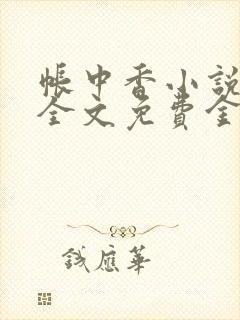 帳中香小說
全文免費全
錢應華